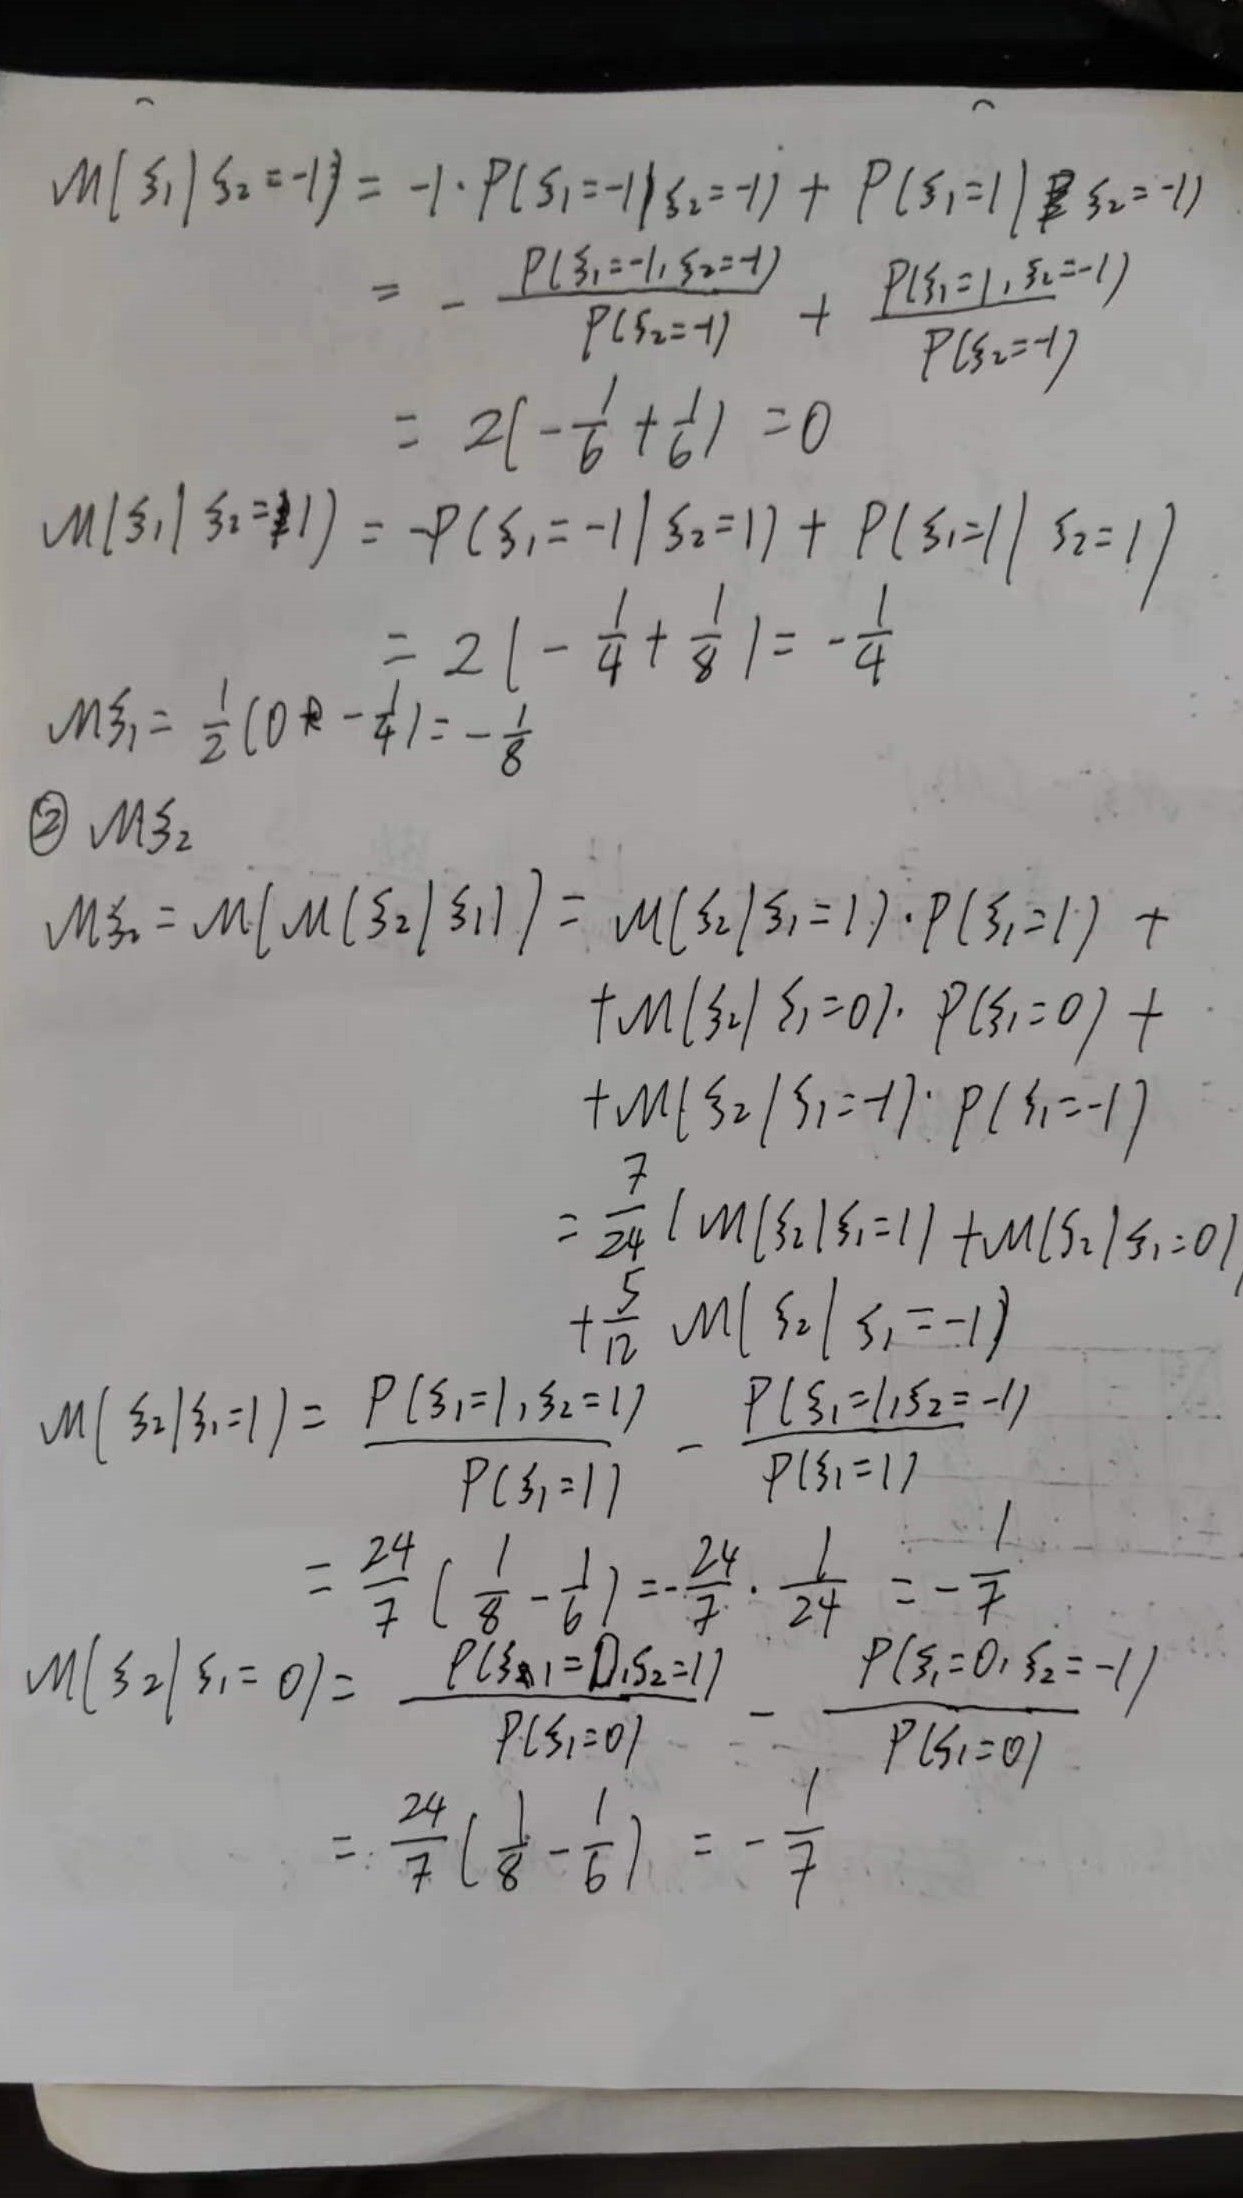 M(ξ₁|ξ₂=-1) = -1·P(ξ₁=-1|ξ₂=-1) + P(ξ₁=1|ξ₂=-1)
= - P(ξ₁=-1,ξ₂=-1)/P(ξ₂=-1) + P(ξ₁=1,ξ₂=-1)/P(ξ₂=-1)
= 2(-1/6+1/6) = 0
M(ξ₁|ξ₂=1) = -P(ξ₁=-1|ξ₂=1) + P(ξ₁=1|ξ₂=1)
= 2(-1/4+1/8) = -1/4
Mξ₁ = 1/2(0 - 1/4) = -1/8
② Mξ₂
Mξ₂ = M(M(ξ₂|ξ₁)) = M(ξ₂|ξ₁=1)·P(ξ₁=1) +
+M(ξ₂|ξ₁=0)·P(ξ₁=0) +
+M(ξ₂|ξ₁=-1)·P(ξ₁=-1)
= 7/24 (M(ξ₂|ξ₁=1) + M(ξ₂|ξ₁=0)
+ 5/12 M(ξ₂|ξ₁=-1)
M(ξ₂|ξ₁=1) = P(ξ₁=1,ξ₂=1)/P(ξ₁=1) - P(ξ₁=1,ξ₂=-1)/P(ξ₁=1)
= 24/7 (1/8 - 1/6) = -24/7 · 1/24 = -1/7
M(ξ₂|ξ₁=0) = P(ξ₁=0,ξ₂=1)/P(ξ₁=0) - P(ξ₁=0,ξ₂=-1)/P(ξ₁=0)
= 24/7 (1/8 - 1/6) = -1/7